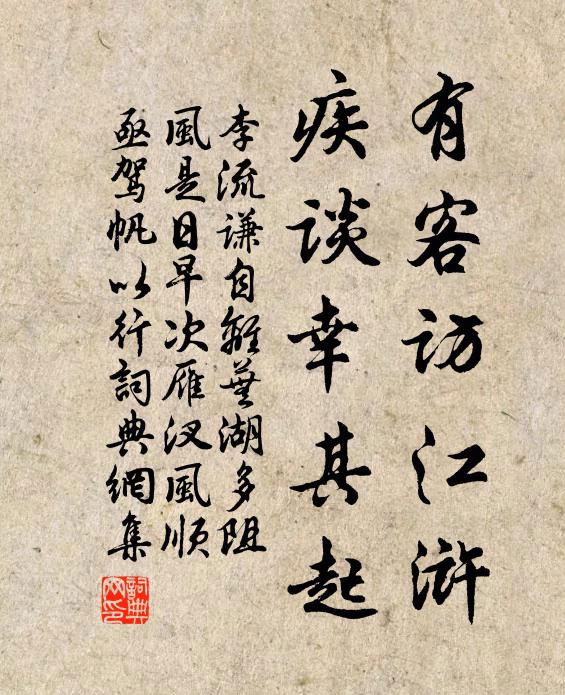 有客访江浒
疾谈幸其起
李流谦自离芜湖多阻
風是日早次雁汊風順
亟驾帆以行詞典網集
詞典网印